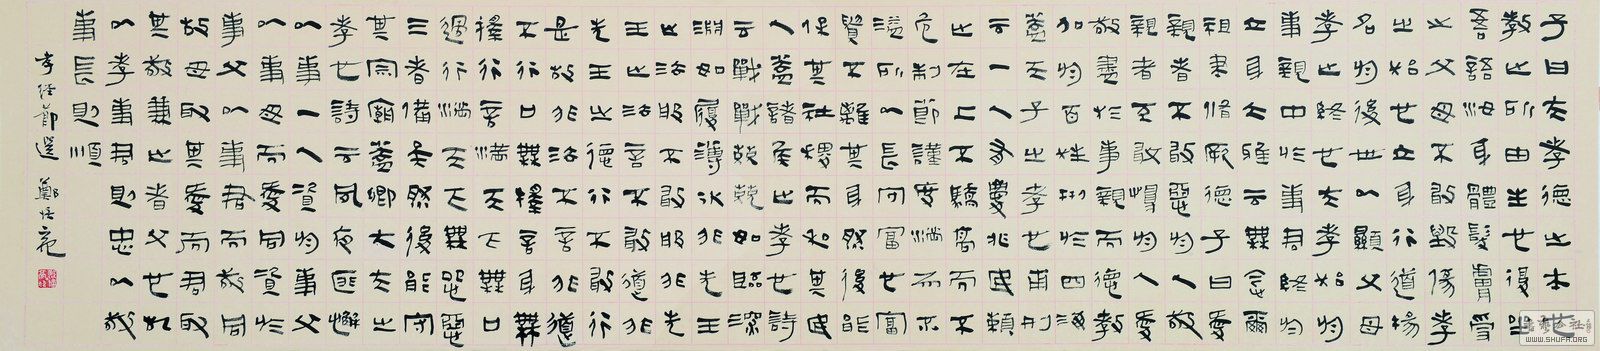 子曰夫孝德之本也
教之所由生也復坐
吾語汝身體髮膚受
之父母不敢毀傷孝
之始也立身行道揚
名於後世以顯父母
孝之終也夫孝始於
事親中於事君終於
立身大雅云無念爾
祖聿脩厥德子曰愛
親者不敢惡於人敬
親者不敢慢於人愛
敬盡於事親而德教
加於百姓刑於四海
蓋天子之孝也甫刑
云一人有慶兆民賴
之在上不驕高而不
危制節謹度滿而不
溢所以長守富也富
貴不離其身然後能
保其社稷而和其民
人蓋諸侯之孝也詩
云戰戰兢兢如臨深
淵如履薄冰非先王
之法服不敢服非先
王之法言不敢道非
先王之德行不敢行
是故非法不言非道
不行口無擇言身無
擇行言滿天下無口
過行滿天下無怨惡
三者備矣然後能守
其宗廟蓋卿大夫之
孝也詩云夙夜匪懈
以事一人資於事父
以事母而愛同資於
事父以事君而敬同
故母取其愛而君取
其敬兼之者父也故
以孝事君則忠以敬
事長則順
孝經節選 鄭培亮
WWW.SHUFA.ORG